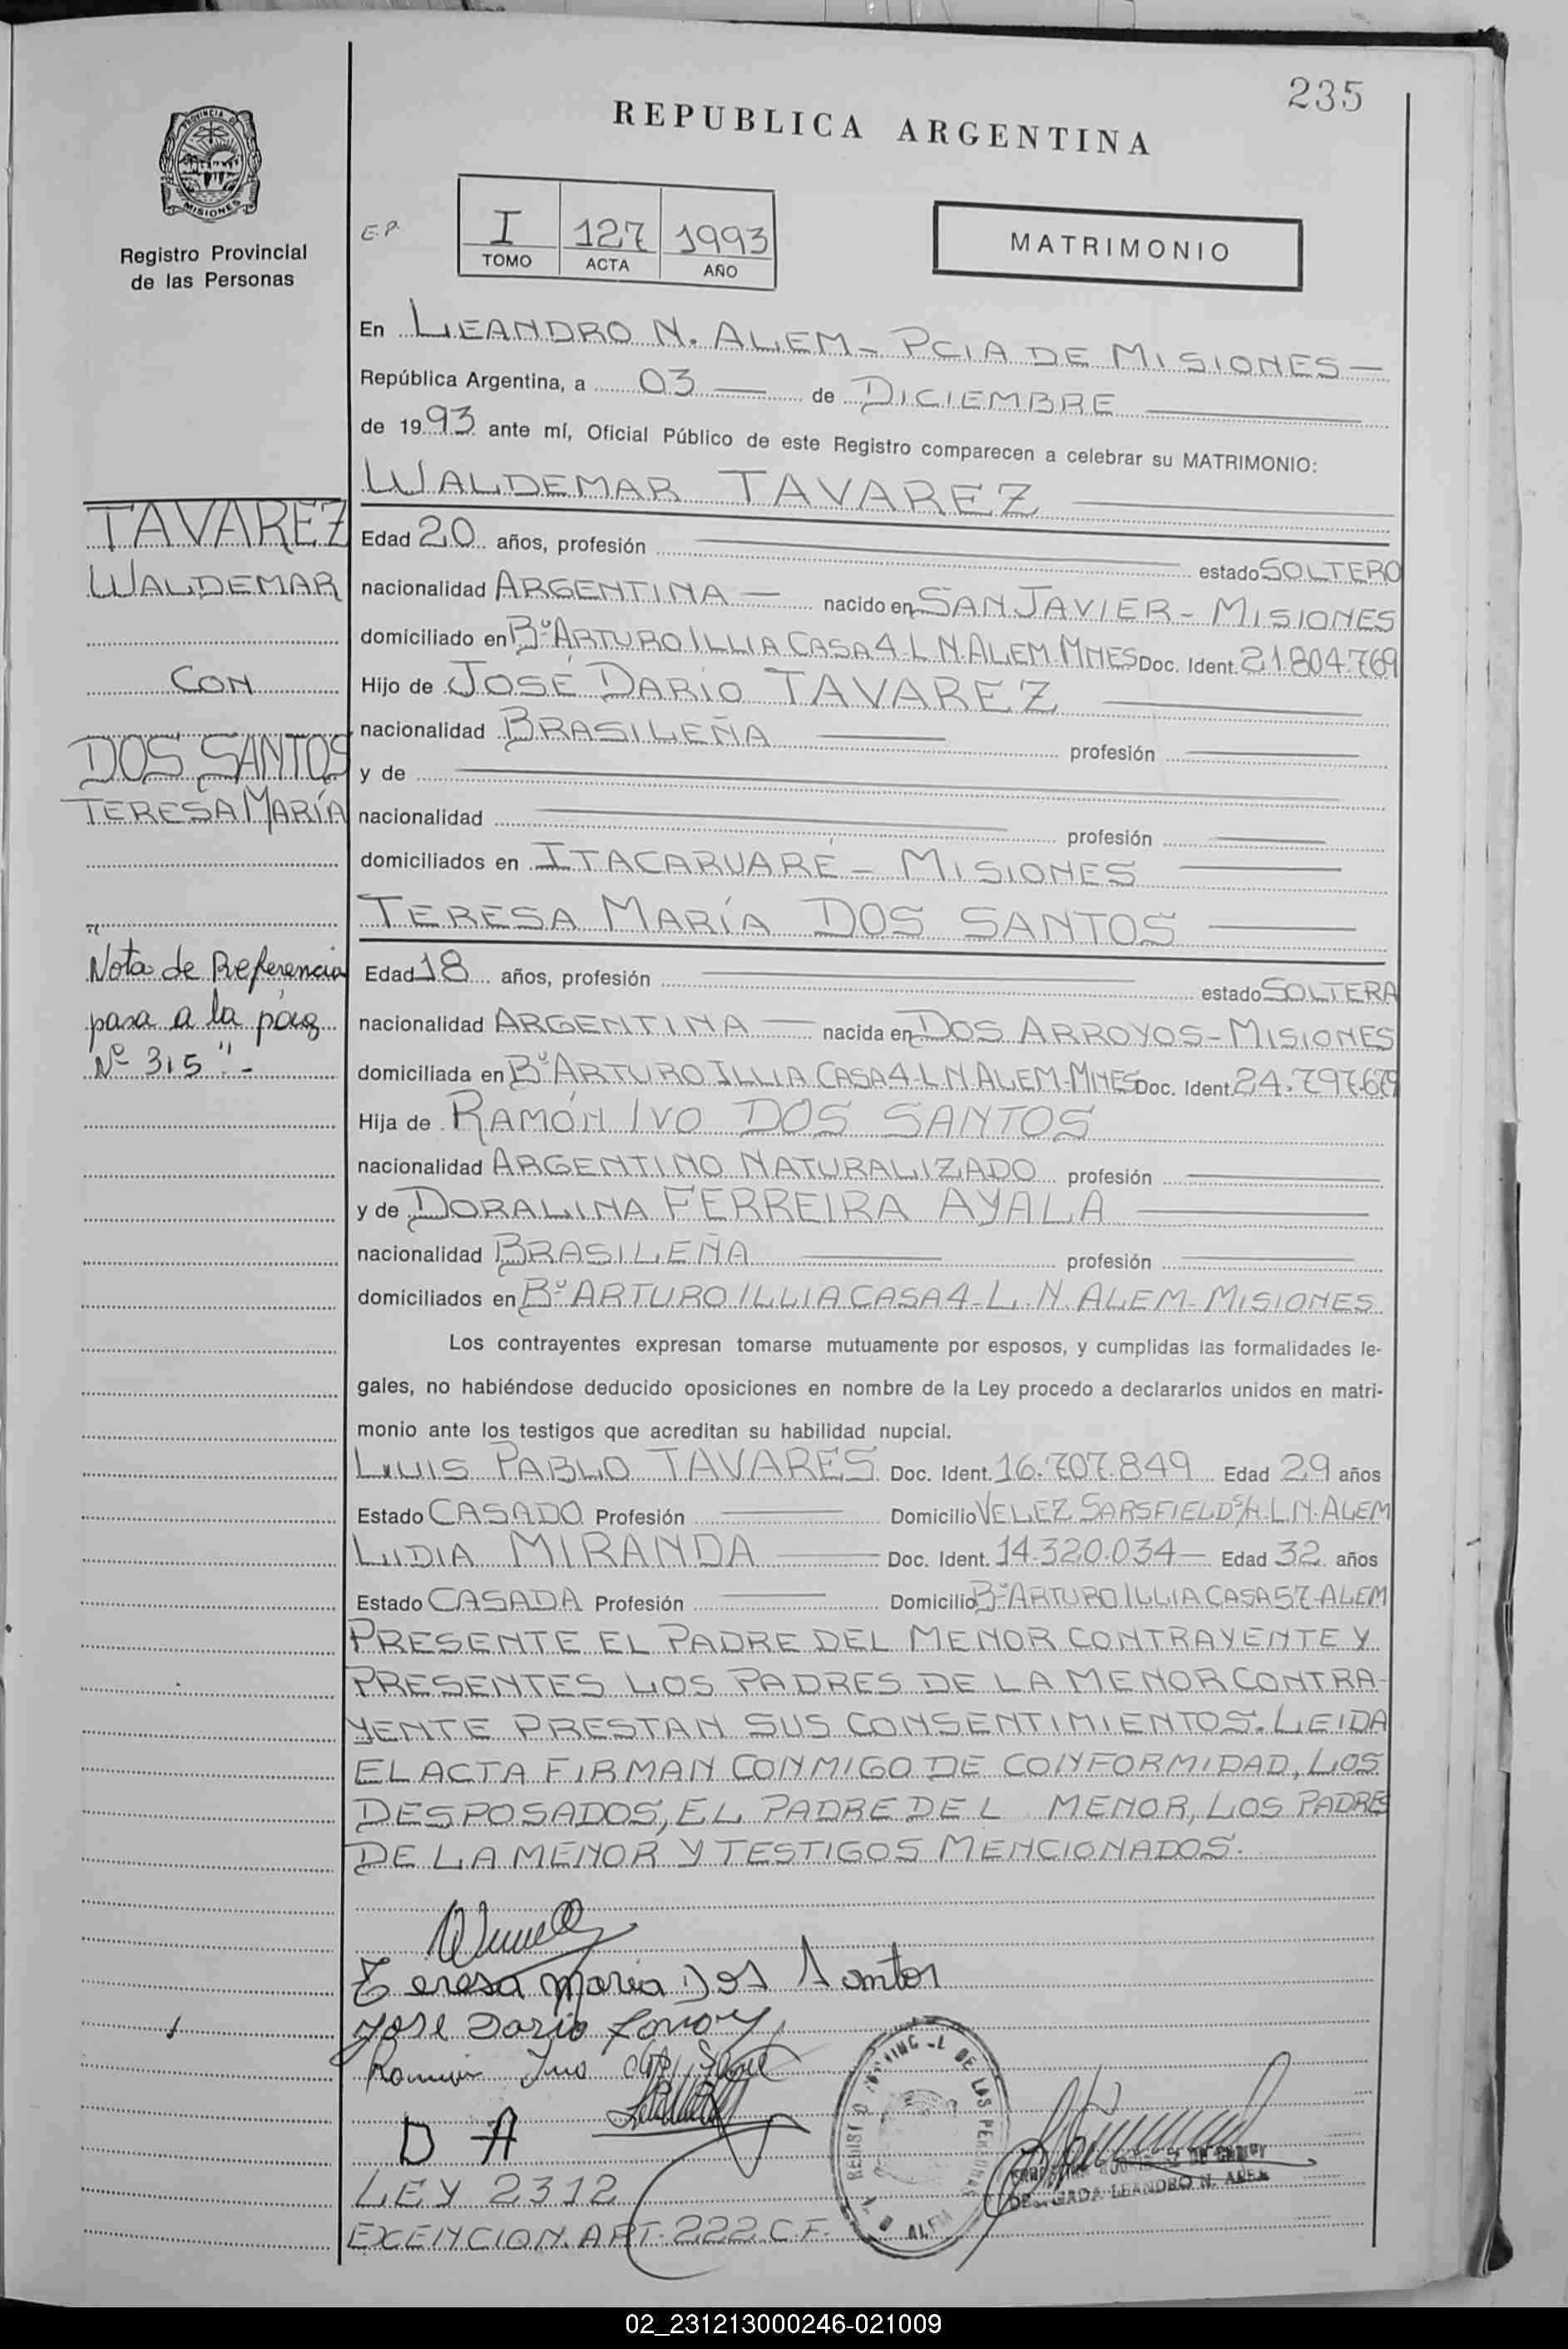 235
REPUBLICA ARGENTINA
PROVINCIA DE
MISIONES
Registro Provincial
de las Personas
E.P.
I 127 1993
TOMO ACTA AÑO
MATRIMONIO
En LEANDRO N. ALEM - PCIA DE MISIONES -
República Argentina, a 03 de DICIEMBRE
de 1993 ante mí, Oficial Público de este Registro comparecen a celebrar su MATRIMONIO:
WALDEMAR TAVAREZ
Edad 20 años, profesión estado SOLTERO
nacionalidad ARGENTINA nacido en SAN JAVIER - MISIONES
domiciliado en Bº ARTURO ILLIA CASA 4-L N. ALEM-MNES Doc. Ident. 21.804.769
Hijo de JOSÉ DARÍO TAVAREZ
nacionalidad BRASILEÑA profesión
y de
nacionalidad profesión
domiciliados en ITACARUARÉ - MISIONES
TERESA MARÍA DOS SANTOS
Edad 18 años, profesión estado SOLTERA
nacionalidad ARGENTINA nacida en DOS ARROYOS - MISIONES
domiciliada en Bº ARTURO ILLIA CASA 4-L N ALEM-MNES Doc. Ident. 24.797.679
Hija de RAMÓN IVO DOS SANTOS
nacionalidad ARGENTINO NATURALIZADO profesión
y de DORALINA FERREIRA AYALA
nacionalidad BRASILEÑA profesión
domiciliados en Bº ARTURO ILLIA CASA 4-L. N. ALEM-MISIONES
Los contrayentes expresan tomarse mutuamente por esposos, y cumplidas las formalidades le-
gales, no habiéndose deducido oposiciones en nombre de la Ley procedo a declararlos unidos en matri-
monio ante los testigos que acreditan su habilidad nupcial.
LUIS PABLO TAVARES Doc. Ident. 16.707.849 Edad 29 años
Estado CASADO Profesión Domicilio VELEZ SARSFIELD S/N-L.N-ALEM
LIDIA MIRANDA Doc. Ident. 14.320.034 Edad 32 años
Estado CASADA Profesión Domicilio Bº ARTURO ILLIA CASA 57-ALEM
PRESENTE EL PADRE DEL MENOR CONTRAYENTE Y
PRESENTES LOS PADRES DE LA MENOR CONTRA-
YENTE PRESTAN SUS CONSENTIMIENTOS. LEIDA
EL ACTA FIRMAN CONMIGO DE CONFORMIDAD, LOS
DESPOSADOS, EL PADRE DEL MENOR, LOS PADRES
DE LA MENOR Y TESTIGOS MENCIONADOS.
Teresa Maria Dos Santos
Jose Dario
Ramon Ivo dos
D A
LEY 2312
EXENCION. ART. 222 C.F.
DE LAS PERSONAS
ALEM
LEANDRO N. ALEM
TAVAREZ
WALDEMAR
CON
DOS SANTOS
TERESA MARÍA
Nota de Referencia
pasa a la pág
Nº 315".-
02_231213000246-021009